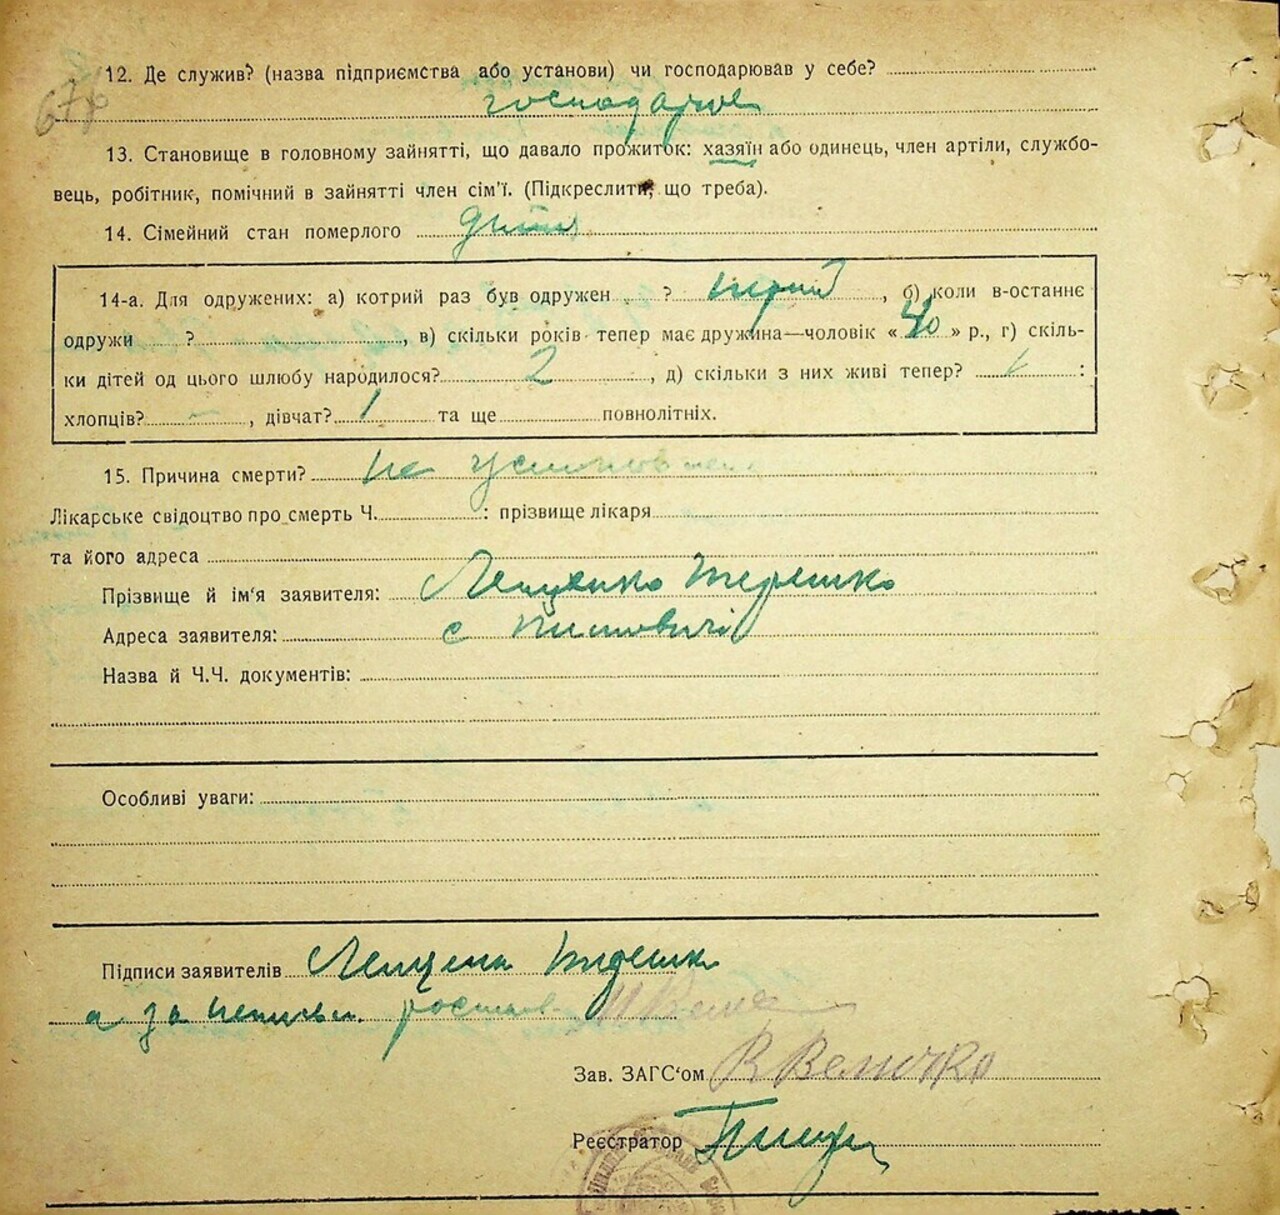 67
12. Де служив? (назва підприємства або установи) чи господарював у себе?
господарюв
13. Становище в головному зайнятті, що давало прожиток: хазяїн або одинець, член артіли, службо-
вець, робітник, помічний в зайнятті член сім'ї. (Підкреслити, що треба).
14. Сімейний стан померлого
14-а. Для одружених: а) котрий раз був одружен ? перший, б) коли в-останнє
одружи ?, в) скільки років тепер має дружина—чоловік «40» р., г) скіль-
ки дітей од цього шлюбу народилося? 2, д) скільки з них живі тепер? 1 :
хлопців? –, дівчат? 1 та ще повнолітніх.
15. Причина смерти? не установлена
Лікарське свідоцтво про смерть Ч. : прізвище лікаря
та його адреса
Прізвище й ім'я заявителя: Лещенко Терешко
Адреса заявителя: с
Назва й Ч.Ч. документів:
Особливі уваги:
Підписи заявителів Лещенко Терешко
а за
Зав. ЗАГС'ом В Величко
Реєстратор